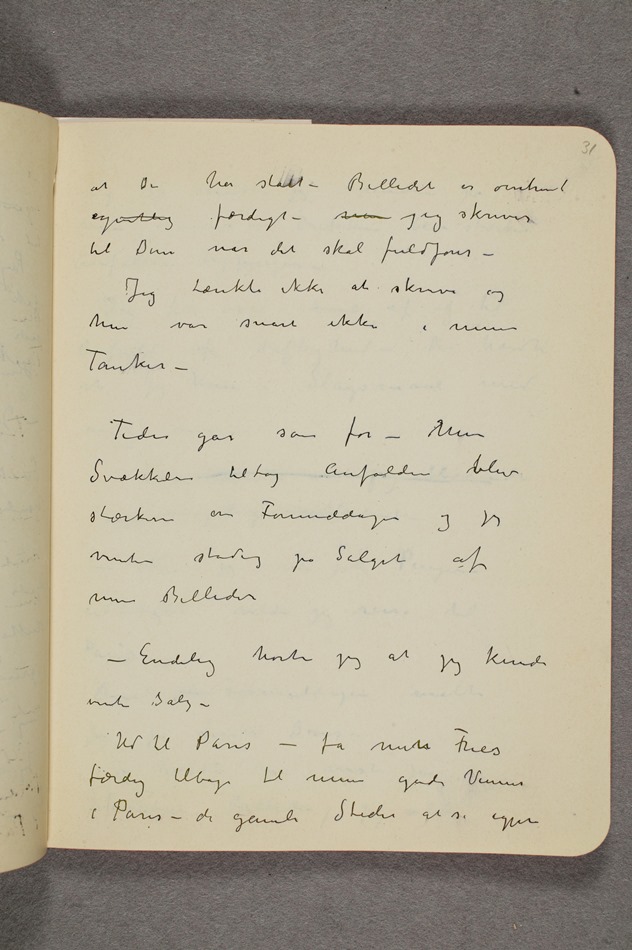 31
at De har stått – Billedet er omtrent
færdigt – som jeg skriver
til Dem når det skal fuldføres –
Jeg tænkte ikke at skrive og
hun var snart ikke i mine
Tanker –
Tiden gar som for – Men
Svækkelsen tiltog Anfaldene blev
stærkere om Formiddagen og jeg
venter stadig på Salget af
mine Billeder
– Endelig hørte jeg at jeg kunde
vente Salg –
Ud til Paris – fa mit Fries
færdig tilbage til mine gode Venner
i Paris – de gamle Steder at se igjen